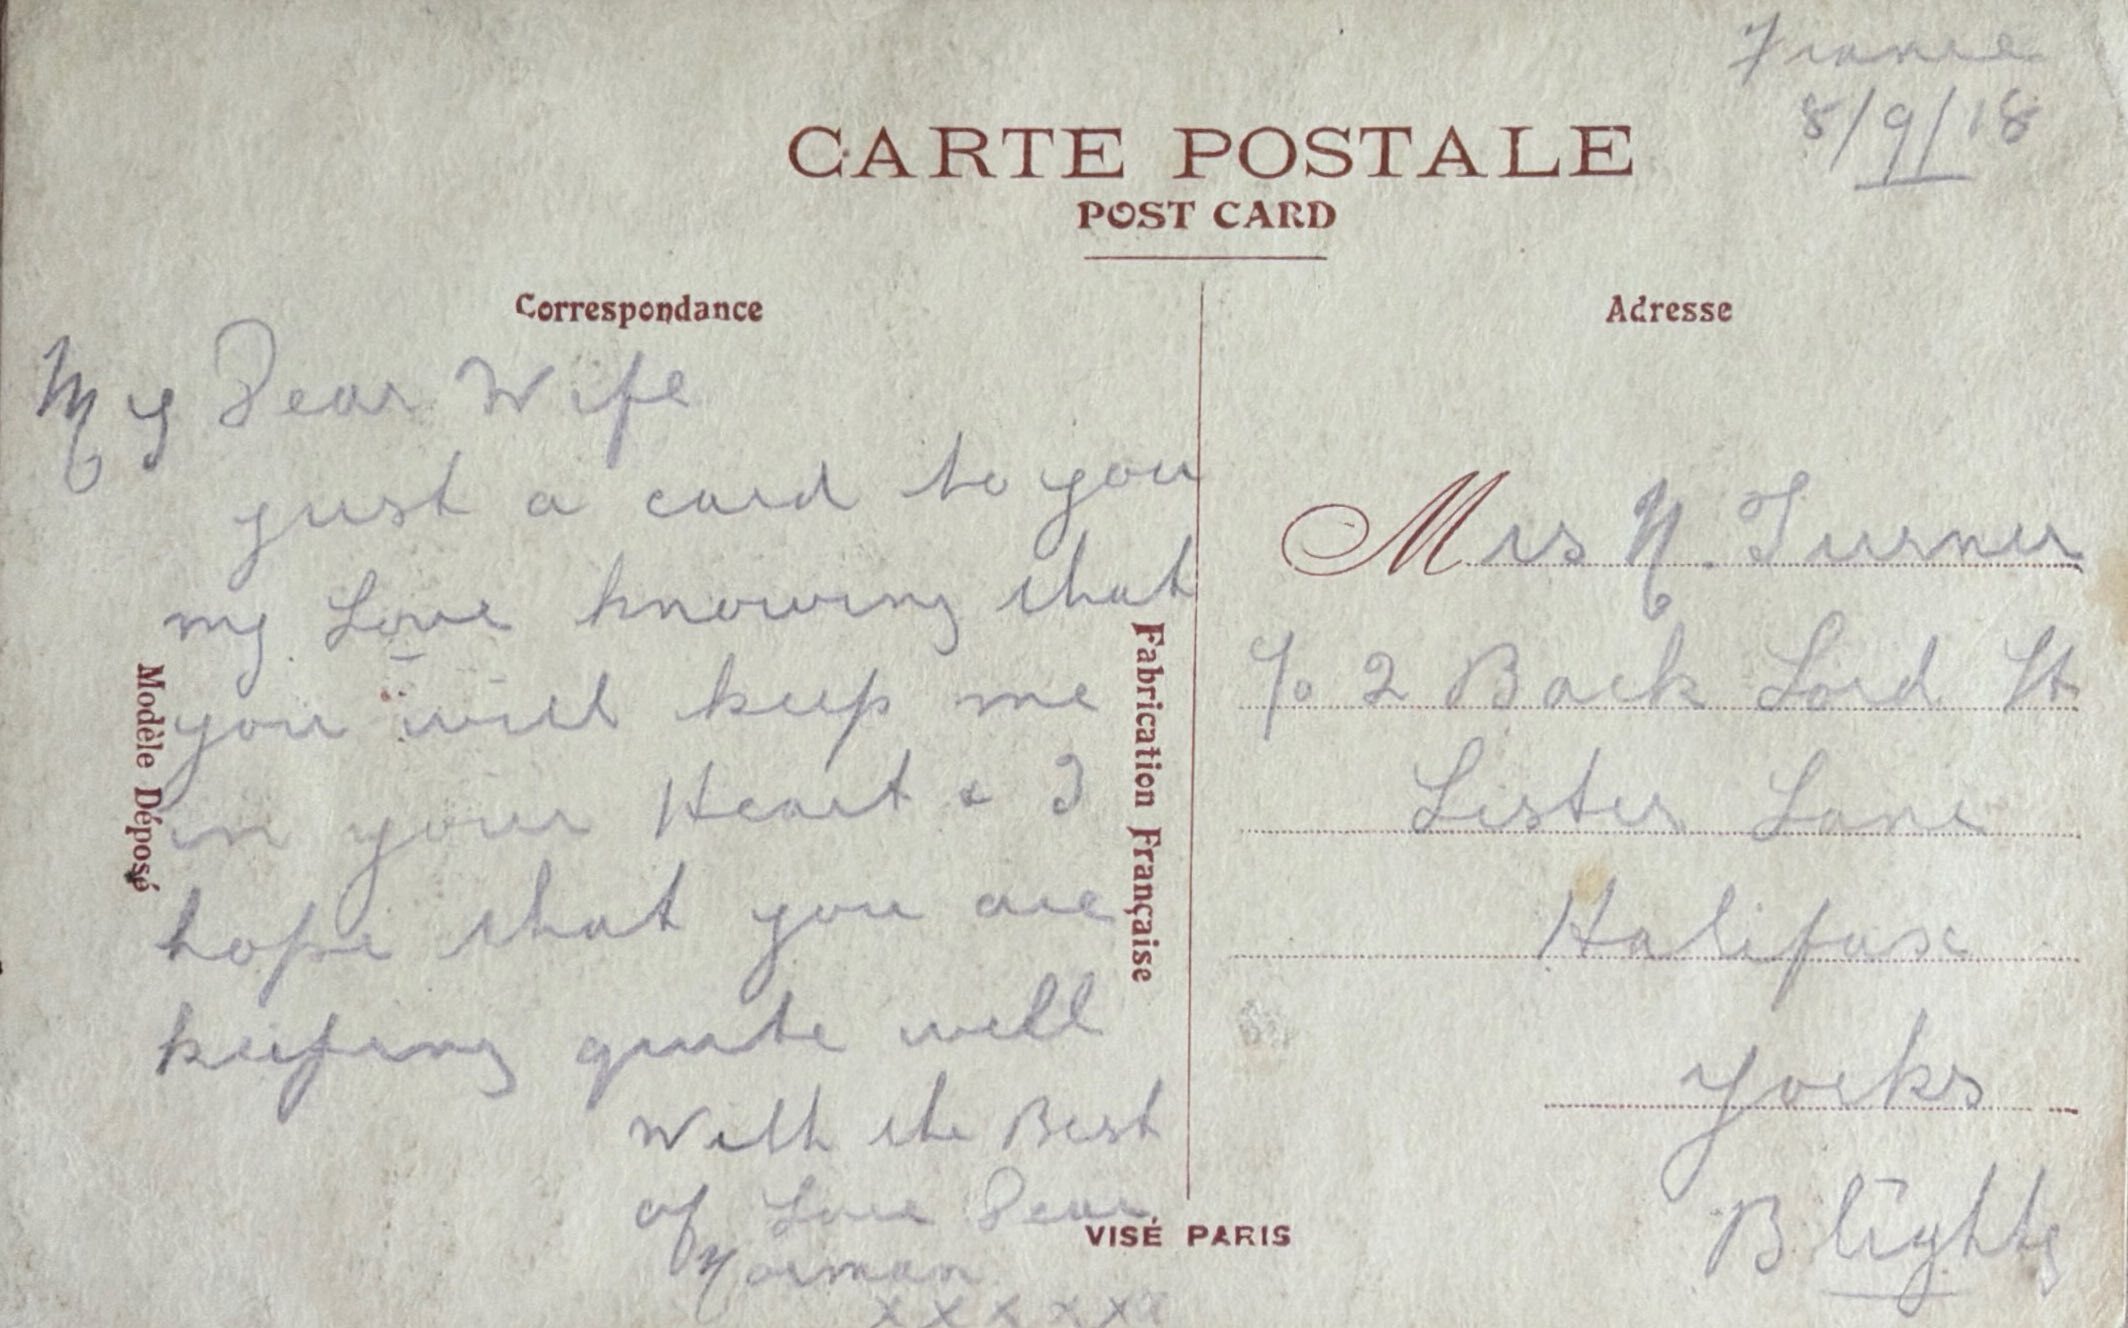 France
8/9/18
CARTE POSTALE
POST CARD
Correspondance
My Dear Wife
just a card to you
my Love knowing that
you will keep me
in your Heart & I
hope that you are
keeping quite well
With the Best
of Love Dear
Norman
xxxxxx
Modèle Déposé
Fabrication Française
VISÉ PARIS
Adresse
Mrs N. Turner
c/o 2 Back Lord St
Lister Lane
Halifax
Yorks
Blighty